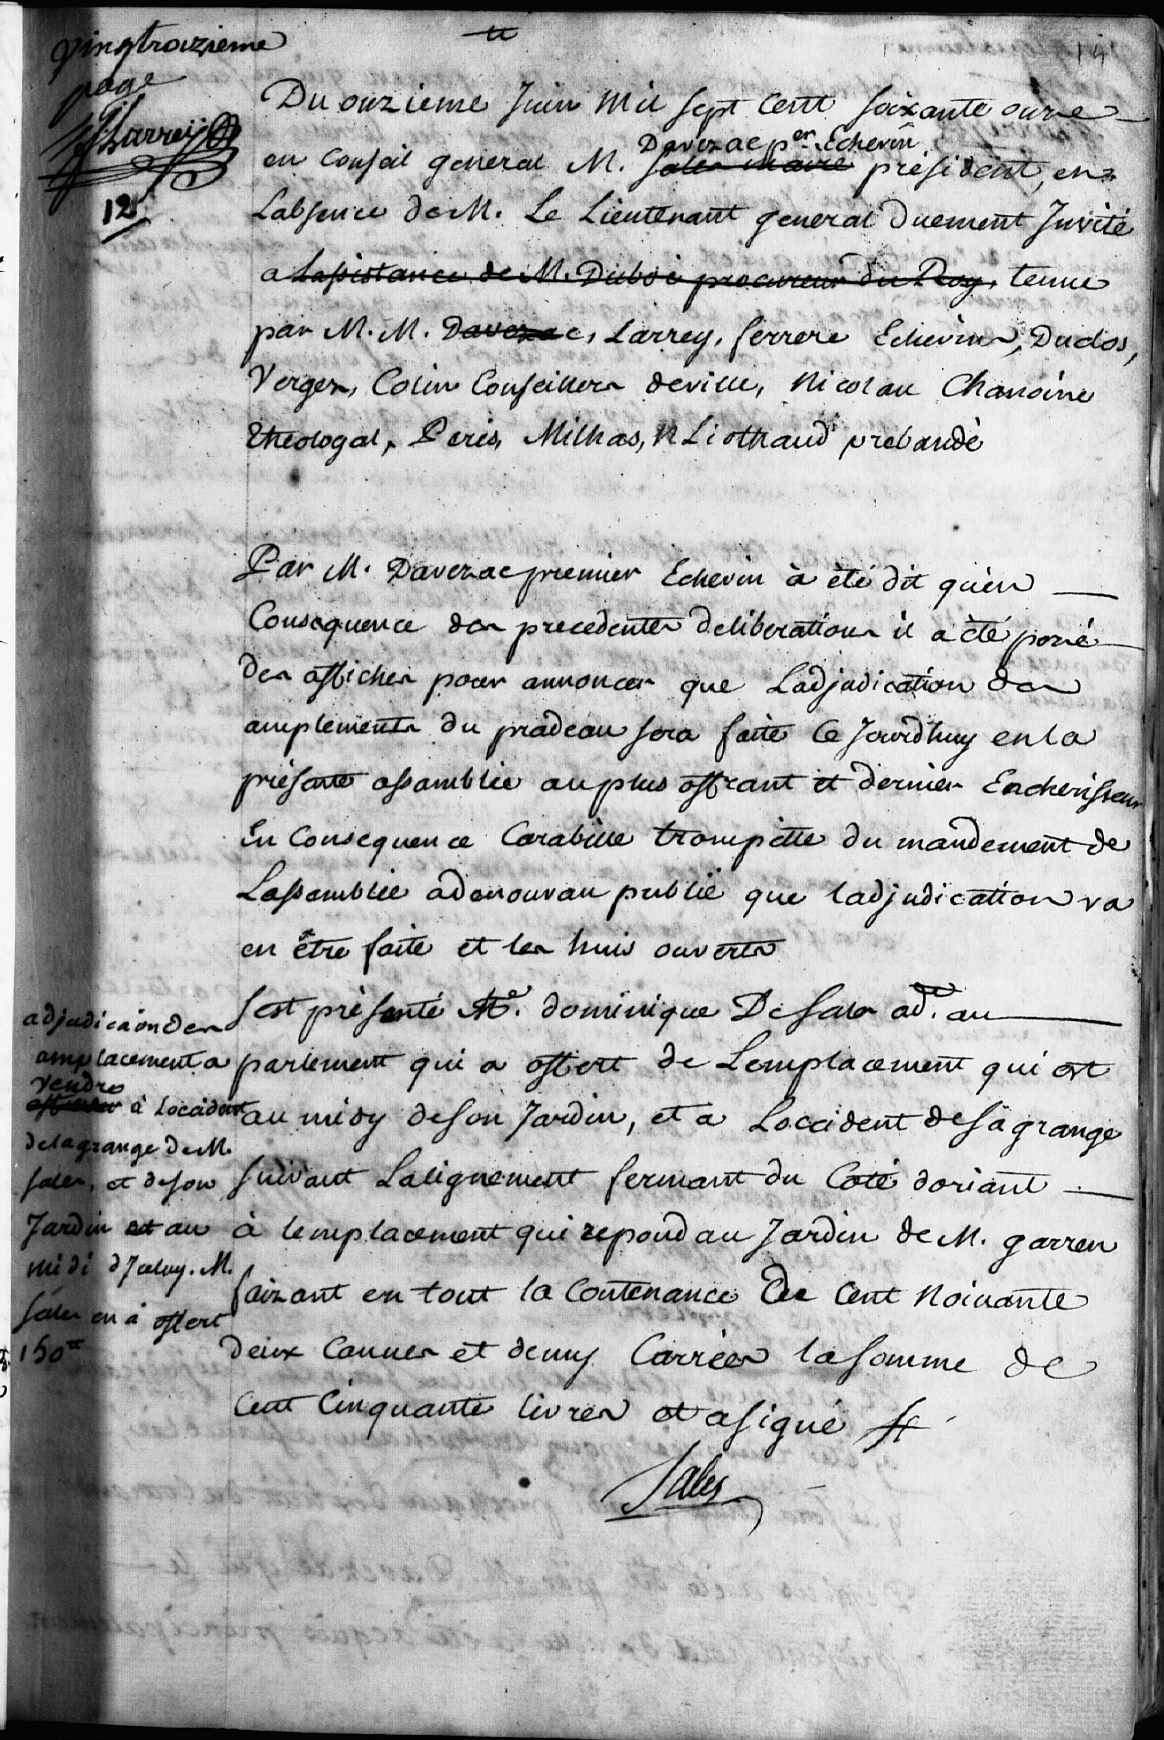 vingtroizieme
page
Larrey
12
14
Du onzieme Juin mil sept cent soixante onze
en Conseil general M. Davezac p.er Echevin sales maire président, en
Labsence de M. Le Lieutenant general duement Invité
a Lassistance de M. Duboé procureur du Roy, tenue
par M. M. Davezac, Larrey, ferrere Echevins, Duclos,
Verges, Colin Conseillers deville, Nicolau Chanoine
theologal, Perés, Milhas, Liothaud prebandé
Par M. Davezac premier Echevin à été dit quèn
Consequence des precedentes deliberations il a été posé
des affiches pour annoncer que Ladjudication des
amplements du pradeau sera faite Ce Jourdhuy en la
présente assamblée au plus offrant et dernier Encherisseur
En Consequence Carabille trompette du mandement de
Lassemblée adenouvau publié que ladjudication va
en être faite et les huis ouverts
sest présenté Me. dominique De Sales ad.t au
parlement qui a offert de Lemplacement qui est
au midy deson Jardin, et a Loccident desa grange
suivant Lalignement fermant du Coté doriant
à lemplacement qui repond au Jardin de M. garren
faizant en tout la Contenance de Cent Noinante
deux Cannes et demy Carrées la somme de
Cent Cinquante livres et a signé
Sales
adjudicaion des
amplacement a
vendre
à Loccident
dela grange de M.
sales, et deson
Jardin et au
midi dJceluy. M.
sales en à offert
150tt